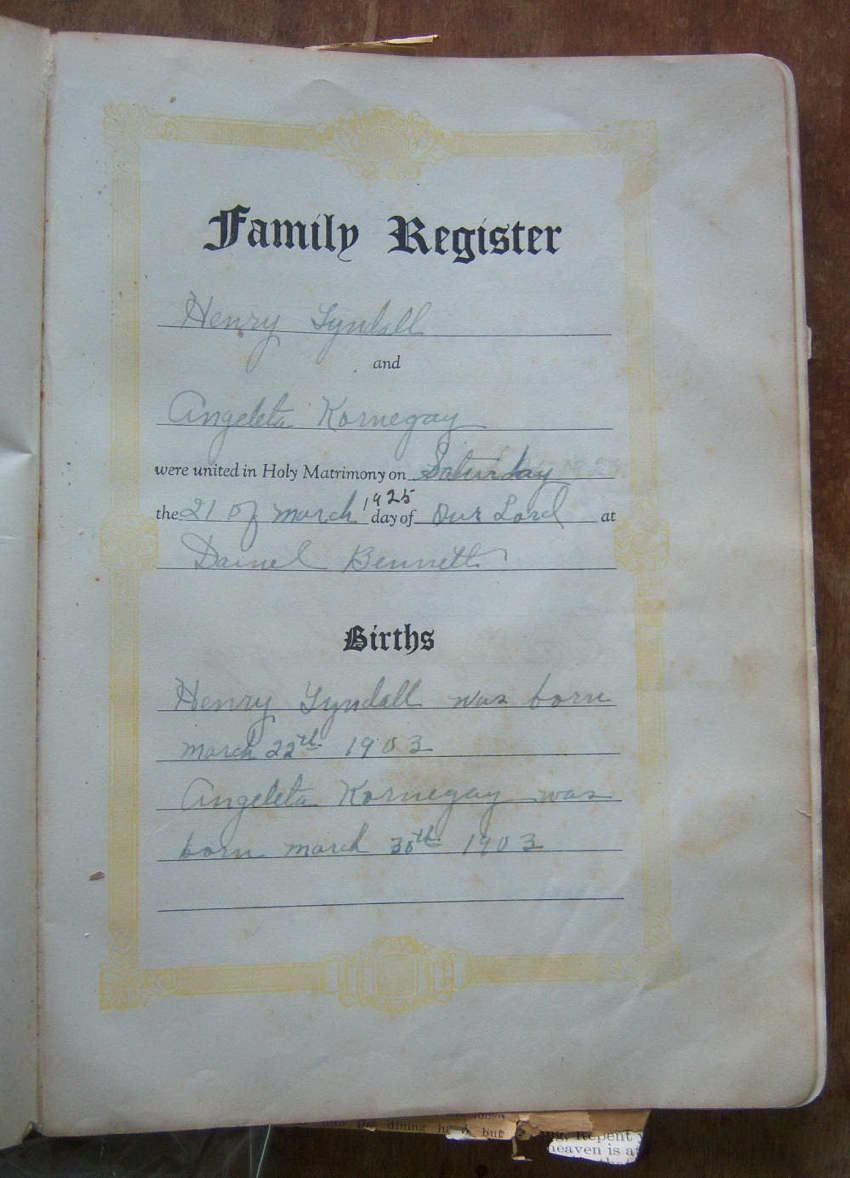 Family Register
Henry Tyndall
and
Angeleta Kornegay
were united in Holy Matrimony on Saturday
the 21 of march 1925 day of Our Lord at
Dainel Bennett
Births
Henry Tyndall was born
march 22th 1903
Angeleta Kornegay was
born march 30th 1903
dining but
Repent
heaven is at